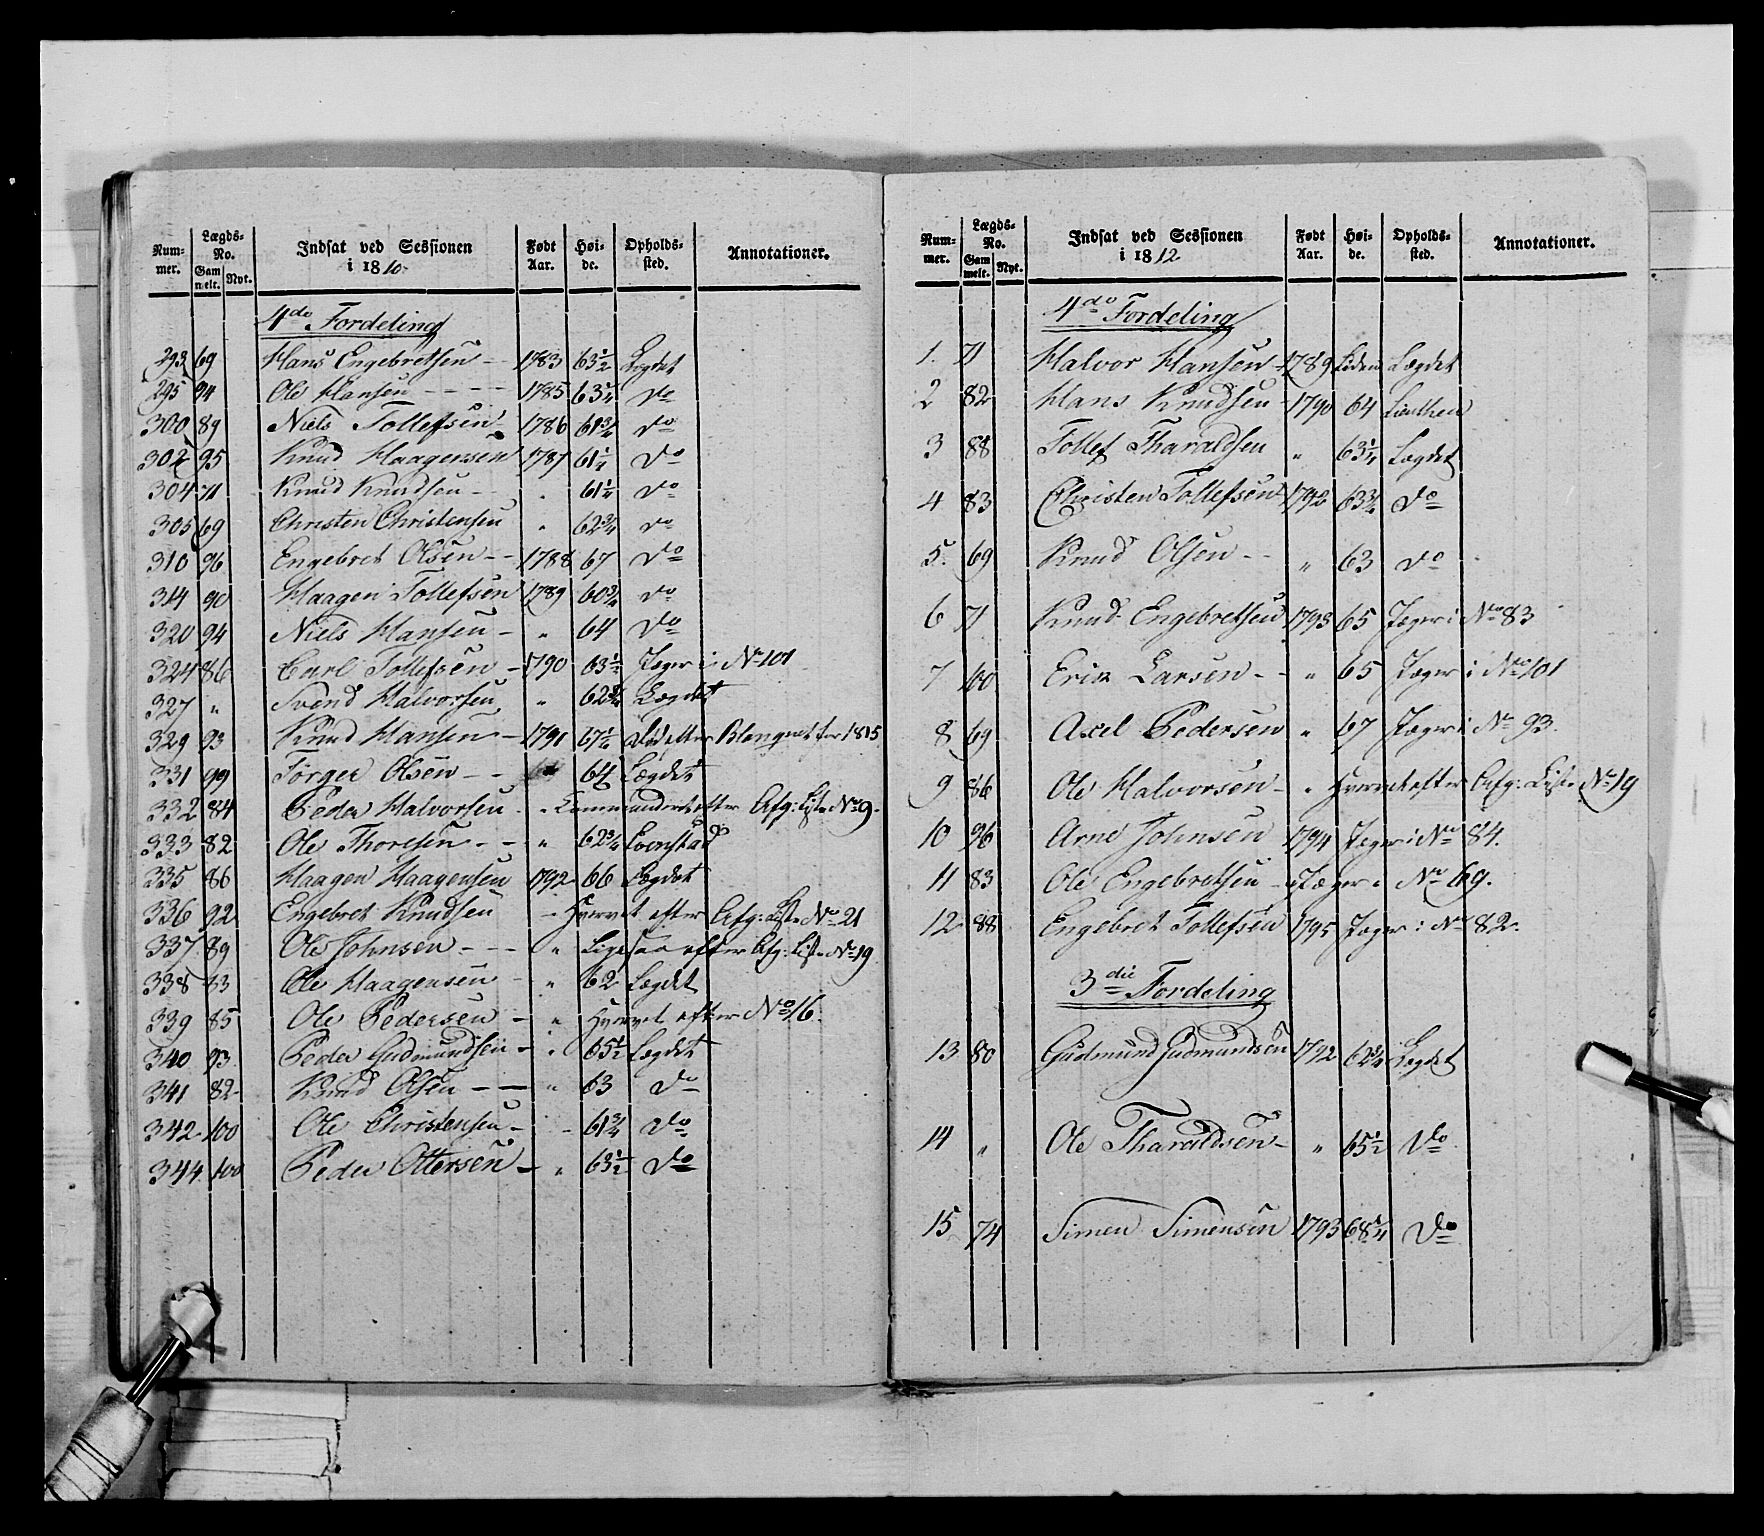 Num-mer. Lægds-No. Gam melt. Nyt. Indsat ved Sessionen i 1810. Født Aar. Høi-de. Opholds-sted. Annotationer.
4de Fordeling
293 69 Hans Engebretsen - - 1783 63½ Lægdet
295 94 Ole Hansen - - - - 1785 63¼ do
300 89 Niels Tollefsen 1786 61¾ do
302 95 Knud Haagensen 1787 61¼ do
304 71 Knud Knudsen - - " 61¼ do
305 69 Christen Christensen " 62¾ do
310 96 Engebret Olsen - - 1788 67 do
314 90 Haagen Tollefsen 1789 60¾ do
320 94 Niels Hansen - " 64 do
324 86 Carl Tollefsen - 1790 63½ Jæger i No 101
327 " Svend Halvorsen " 62¾ Lægdet
329 93 Knud Hansen - 1791 67¼ død efter Blanquet for 1815
331 99 Jørger Olsen - - " 64 Lægdet
332 84 Peder Halvorsen - " Commanderet efter Afg: Liste No 9.
333 82 Ole Thoresen - - " 62¾ Evenstad
335 86 Haagen Haagensen 1792 66 Lægdet
336 92 Engebret Knudsen - Hvervet efter Afg: Liste No 21
337 89 Ole Johnsen - - - " Ligesaa efter Afg: Liste No 19
338 83 Ole Haagensen - " 62 Lægdet
339 85 Ole Pedersen - " Hvervet efter No 16.
340 93 Peder Gudmundsen - " 65½ Lægdet
341 82 Knud Olsen - - " 63 do
342 100 Ole Christensen - - 61¾ do
344 100 Peder Ottersen - " 63½ do
Num-mer. Lægds-No. Gam melt. Nyt. Indsat ved Sessionen i 1812 Født Aar. Høi-de. Opholds-sted. Annotationer.
4de Fordeling
1. 71 Halvor Hansen - 1789 Liden Lægdet
2 82 Hans Knudsen - 1790 64
3 88 Tollef Tharaldsen " 63¼ Lægdet
4 83 Christen Tollefsen 1792 63¾ do
5. 69 Knud Olsen - - " 63 do
6 71 Knud Engebretsen 1793 65 Jæger i No 83
7 100 Erik Larsen - - " 65 Jæger i No 101
8 69 Axel Pedersen " 67 Jæger i No 93.
9 86 Ole Halvorsen - " Hvervet efter Afg: Liste No 19
10 96 Arne Johnsen 1794 Jæger i No 84.
11 83 Ole Engebretsen - " Jæger i No 69.
12 88 Engebret Tollefsen 1795 Jæger i No 82.
3die Fordeling
13 80 Gudmund Gudmundsen 1792 62¾ Lægdet
14 " Ole Tharaldsen - " 65½ do
15 74 Simen Simensen 1793 68¼ do